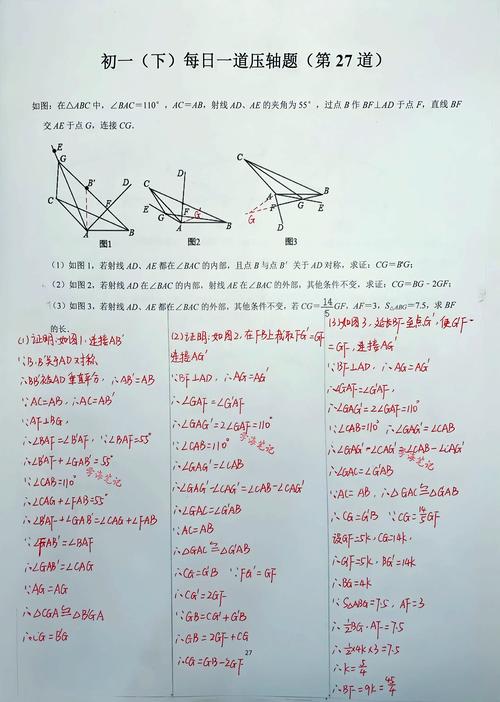 初一（下）每日一道压轴题（第 27 道）
如图：在△ABC 中，∠BAC=110°，AC=AB，射线 AD、AE 的夹角为 55°，过点 B 作 BF⊥AD 于点 F，直线 BF
交 AE 于点 G，连接 CG.
E
G
B'
D
C
F
A
B
图1
D
C
E
F
G'
G
A
B
图2
C
A
B
F
E
G
D
图3
（1）如图 1，若射线 AD、AE 都在∠BAC 的内部，且点 B 与点 B′关于 AD 对称，求证：CG=B′G；
（2）如图 2，若射线 AD 在∠BAC 的内部，射线 AE 在∠BAC 的外部，其他条件不变，求证：CG=BG﹣2GF；
（3）如图 3，若射线 AD、AE 都在∠BAC 的外部，其他条件不变，若 CG=14/5GF，AF=3，S△ABG=7.5，求 BF
的长.
(1) 证明:如图1,连接AB'
∵B、B'关于AD对称
∴BB'被AD垂直平分，∴AB'=AB
∵AC=AB，∴AC=AB'
∵AF⊥BG，
∴∠BAF=∠B'AF，∵∠BAF=55°
∴∠B'AF+∠GAB'=55°
学海笔记
∵∠CAB=110°
∴∠CAG+∠FAB=55°
∴∠B'AF+∠GAB'=∠CAG+∠FAB
∵∠FAB'=∠BAF
∴∠GAB'=∠CAG
∵AG=AG
∴△CGA≌△B'GA
∴CG=B'G
(2) 证明:如图2,在FB上截取FG'=GF
连接AG'
∵BF⊥AD，∴AG=AG'
∴∠GAF=∠G'AF
∴∠GAG'=2∠GAF=110°
∵∠CAB=110°
学海笔记
∴∠GAG'=∠CAB
∴∠GAG'-∠CAG'=∠CAB-∠CAG'
∴∠GAC=∠G'AB
∵AC=AB
∴△GAC≌△G'AB
∴CG=G'B ∵FG'=GF
∴GG'=2GF
∵GB=GG'+G'B
∴GB=2GF+CG
∴CG=GB-2GF
(3) 如图3,延长BF至点G',使G'F
=GF,连接AG'
∵BF⊥AD，∴AG=AG'
∴∠GAF=∠G'AF，
∴∠GAG'=2∠GAF=110°
∵∠CAB=110° ∴∠GAG'=∠CAB
学海笔记
∴∠GAG'-∠CAG'=∠CAB-∠CAG'
∴∠GAC=∠G'AB
∵AC=AB，∴△GAC≌△G'AB
∴CG=G'B ∵CG=14/5GF
设GF=5k，CG=14k，
∴G'F=5k，BG'=14k
∴BG=4k
∵S△ABG=7.5，AF=3
∴1/2BG·AF=7.5
∴1/2×4k×3=7.5
∴k=5/4
∴BF=9k=45/4
27